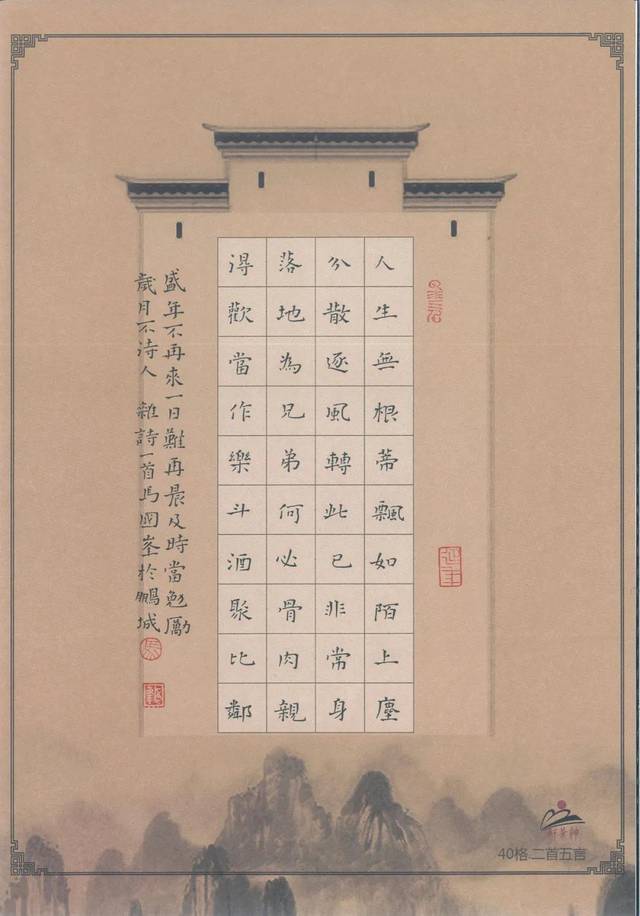 人生無根蒂飄如陌上塵
分散逐風轉此已非常身
落地為兄弟何必骨肉親
得歡當作樂斗酒聚比鄰
盛年不再來一日難再晨及時當勉勵
歲月不待人 雜詩一首馬國峯於鵬城
40格.二首五言